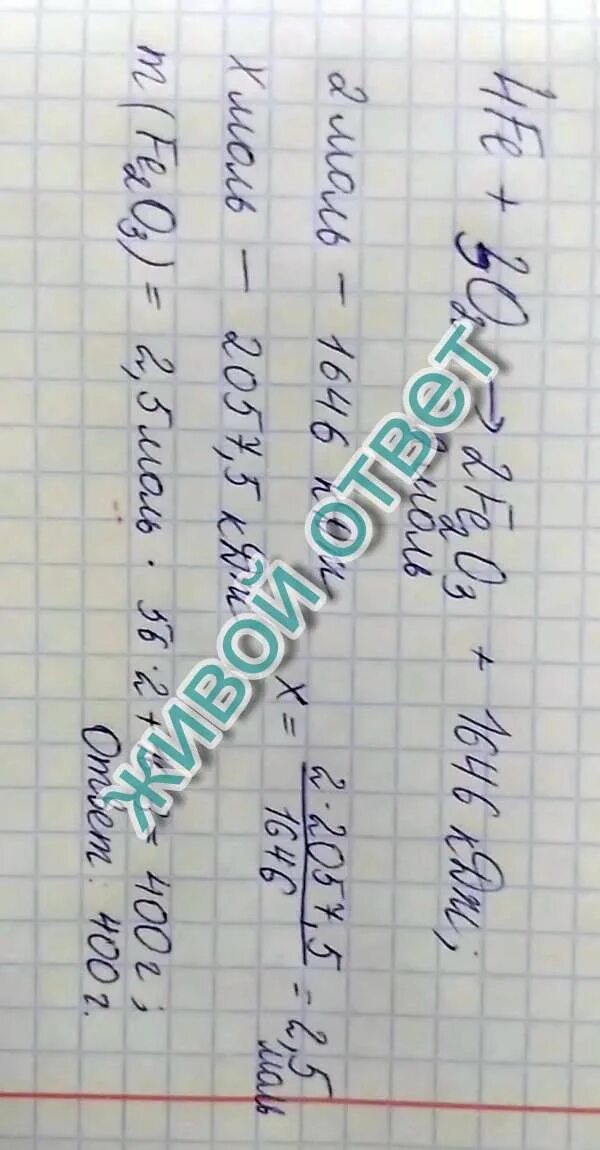 4Fe + 3O2 → 2Fe2O3 + 1646 кДж;
моль
2 моль - 1646 кДж
x моль - 2057,5 кДж
x = 2·2057,5 / 1646 = 2,5 моль
m(Fe2O3) = 2,5 моль · 56·2 + = 400 г;
Ответ: 400 г.
ЖИВОЙ ОТВЕТ